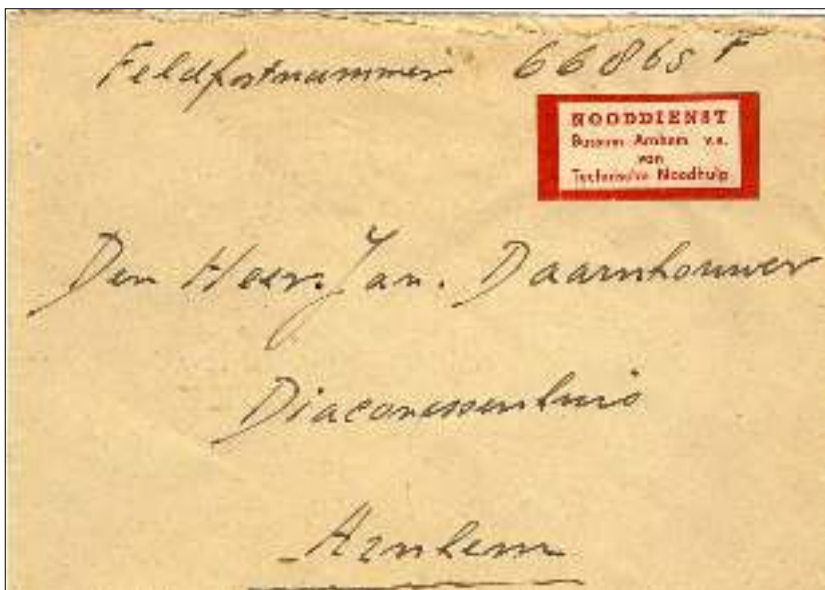 Feldpostnummer 66865 F
NOODDIENST
Bussum Arnhem v.v.
van
Technische Noodhulp
Den Heer. Jan. Daarnhouwer
Diaconessenhuis
Arnhem